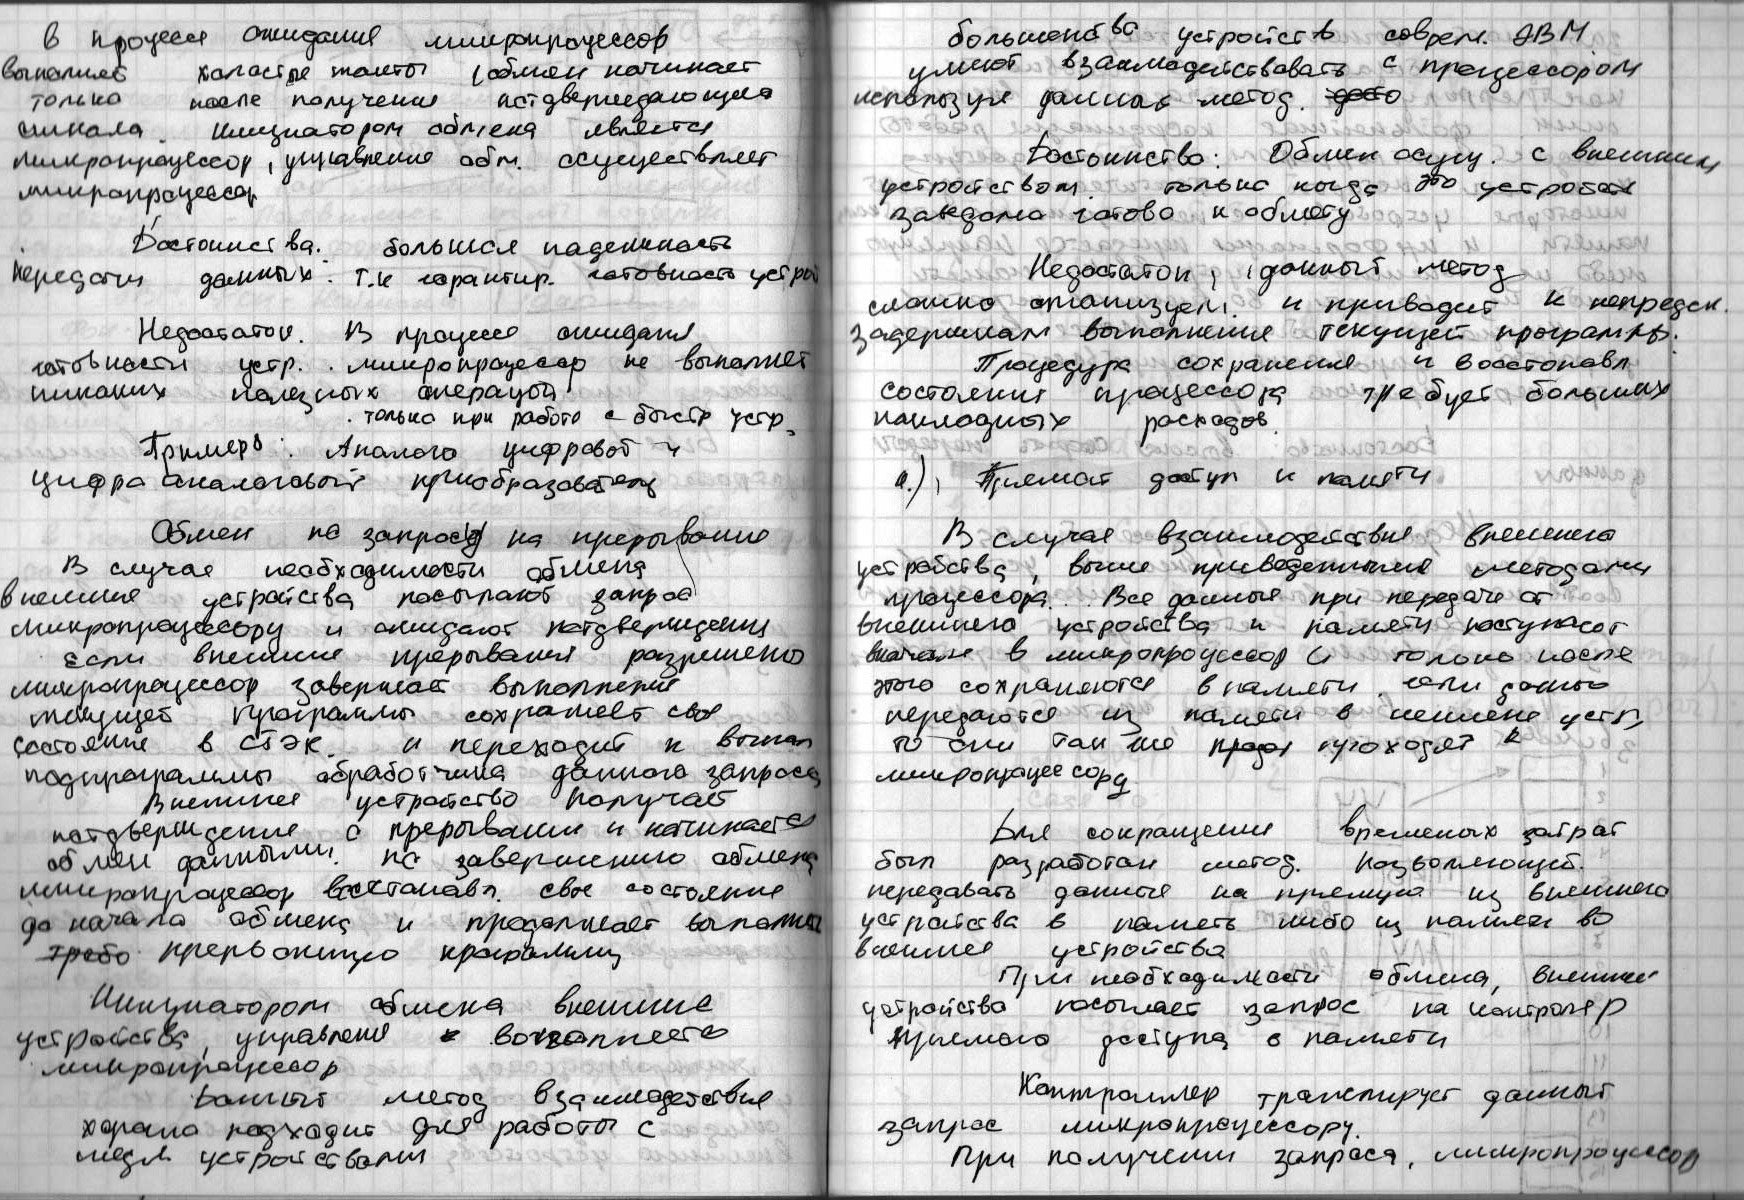 В процессе ожидания микропроцессор
выполняет холостые такты (обмен начинает
только после получения подтверждающего
сигнала. Инициатором обмена является
микропроцессор, управление обм. осуществляет
микропроцессор
Достоинства: большая надежность
передачи данных. т.к гарантир. готовность устрой
Недостаток. В процессе ожидания
готовности устр. микропроцессор не выполняет
никаких полезных операций
только при работе с быстр устр.
Примеры: Аналого цифровой и
цифро аналоговый приобразователь
Обмен по запросу на прерывание
В случае необходимости обмена
внешние устройства посылают запрос
микропроцессору и ожидают подтверждения
Если внешние прерывания разрешено
микропроцессор завершает выполнение
текущей программы сохраняет свое
состояние в СТЭК. и переходит к выпол
подпрограммы обработчика данного запроса
Внешнее устройство получает
подтверждение о прерывании и начинается
обмен данными. по завершению обмена
микропроцессор восстанавл. свое состояние
до начала обмена и продолжает выполнять
прерванную программу
Инициатором обмена внешние
устройства, управление выполняется
микропроцессор
Данный метод взаимодействия
хорошо подходит для работы с
медл устройствами
большенства устройств соврем. ЭВМ
умеют взаимодействовать с процессором
используя данный метод.
Достоинство: Обмен осущ. с внешним
устройством только когда это устройст
заведомо готово к обмену
Недостаток, данный метод
сложно организуем. и приводит к непредск.
задержкам выполнения текущей программы.
Процедура сохранения и восстонавл
состояния процессора требует больших
накладных расходов.
а.) Прямой доступ к памяти
В случае взаимодействие внешнего
устройства, выше приведенными методами
процессора... Все данные при передаче от
внешнего устройства к памяти поступают
вначале в микропроцессор и только после
этого сохраняются в памяти. если данные
передаются из памяти в внешнее устр,
то они так же проходят к
микропроцессору
Для сокращения временых затрат
был разработан метод. позволяющей.
передавать данные на прямую из внешнего
устройства в память либо из памяти во
внешнее устройства
При необходимости обмена, внешнее
устройства посылает запрос на контролер
прямого доступа к памяти
Контроллер транслирует данный
запрос микропроцессору.
При получении запроса, микропроцессор